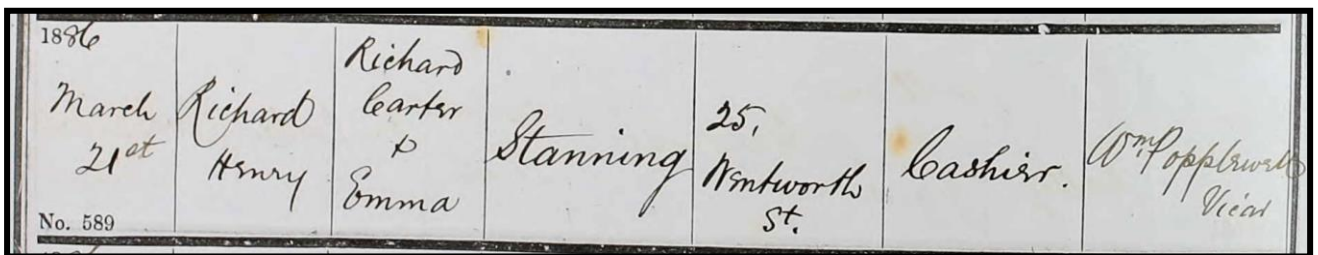 1886
March
21st
No. 589
Richard
Henry
Richard
Carter
&
Emma
Stanning
25,
Wentworth
St.
Cashier.
Wm. Popplewell
Vicar